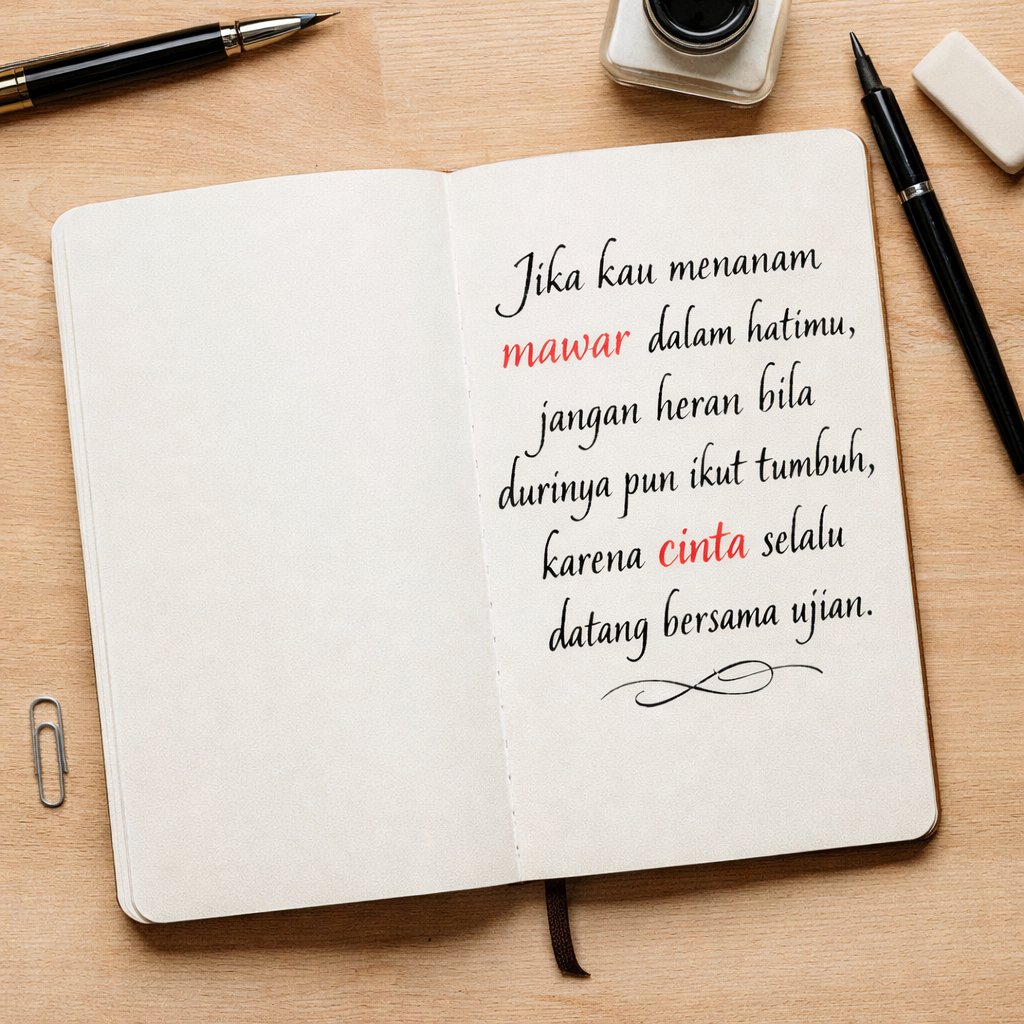 Jika kau menanam
mawar dalam hatimu,
jangan heran bila
durinya pun ikut tumbuh,
karena cinta selalu
datang bersama ujian.